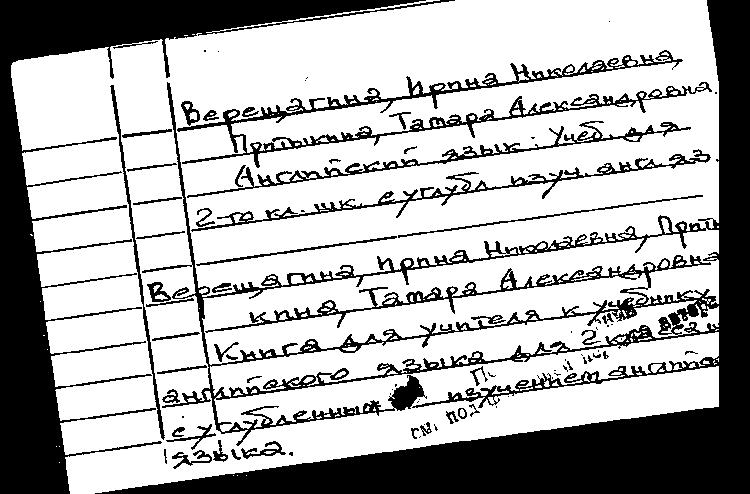 Верещагина, Ирина Николаевна,
Притыкина, Тамара Александровна.
Английский язык: Учеб. для
2-го кл. шк. с углубл. изуч. англ. яз.
Верещагина, Ирина Николаевна, Приты
кина, Тамара Александровна
Книга для учителя к учебнику
английского языка для 2 класса ш
с углубленным изучением английс
языка.
см. под